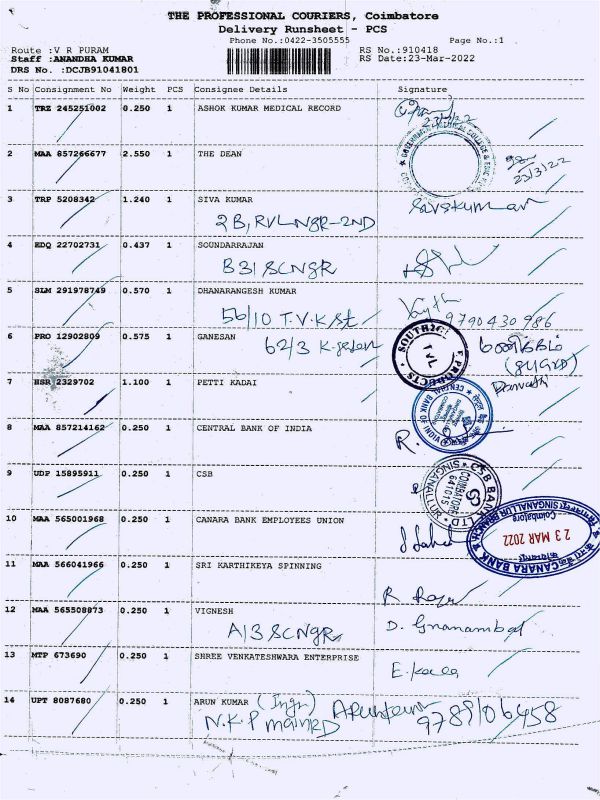 THE PROFESSIONAL COURIERS, Coimbatore
Delivery Runsheet - PCS
Phone No.:0422-3505555 Page No.:1
Route :V R PURAM RS No.:910418
Staff :ANANDHA KUMAR RS Date:23-Mar-2022
DRS No. :DCJB91041801
S No Consignment No Weight PCS Consignee Details Signature
1 TRZ 245251002 0.250 1 ASHOK KUMAR MEDICAL RECORD
23/3/22
2 MAA 857266677 2.550 1 THE DEAN
23/3/22
3 TRP 5208342 1.240 1 SIVA KUMAR Sivakumar
2B, RVLNGR-2ND
4 EDQ 22702731 0.437 1 SOUNDARRAJAN
B31 SCNGR
5 SLM 291978749 0.570 1 DHANARANGESH KUMAR
56/10 T.V.K.St 9790430986
6 PRO 12902809 0.575 1 GANESAN
62/3 K.
PRODUCTS
7 HSR 2329702 1.100 1 PETTI KADAI
8 MAA 857214162 0.250 1 CENTRAL BANK OF INDIA
CENTRAL BANK OF INDIA
9 UDP 15895911 0.250 1 CSB
CSB BANK LTD
SINGANALLUR
COIMBATORE
641015
10 MAA 565001968 0.250 1 CANARA BANK EMPLOYEES UNION
CANARA BANK
SINGANALLUR BRANCH
Coimbatore
23 MAR 2022
11 MAA 566041966 0.250 1 SRI KARTHIKEYA SPINNING
12 MAA 565508873 0.250 1 VIGNESH D. Gnanambal
A/3 SCNGR
13 MTP 673690 0.250 1 SHREE VENKATESHWARA ENTERPRISE
14 UPT 8087680 0.250 1 ARUN KUMAR
N.K.P 9789106458